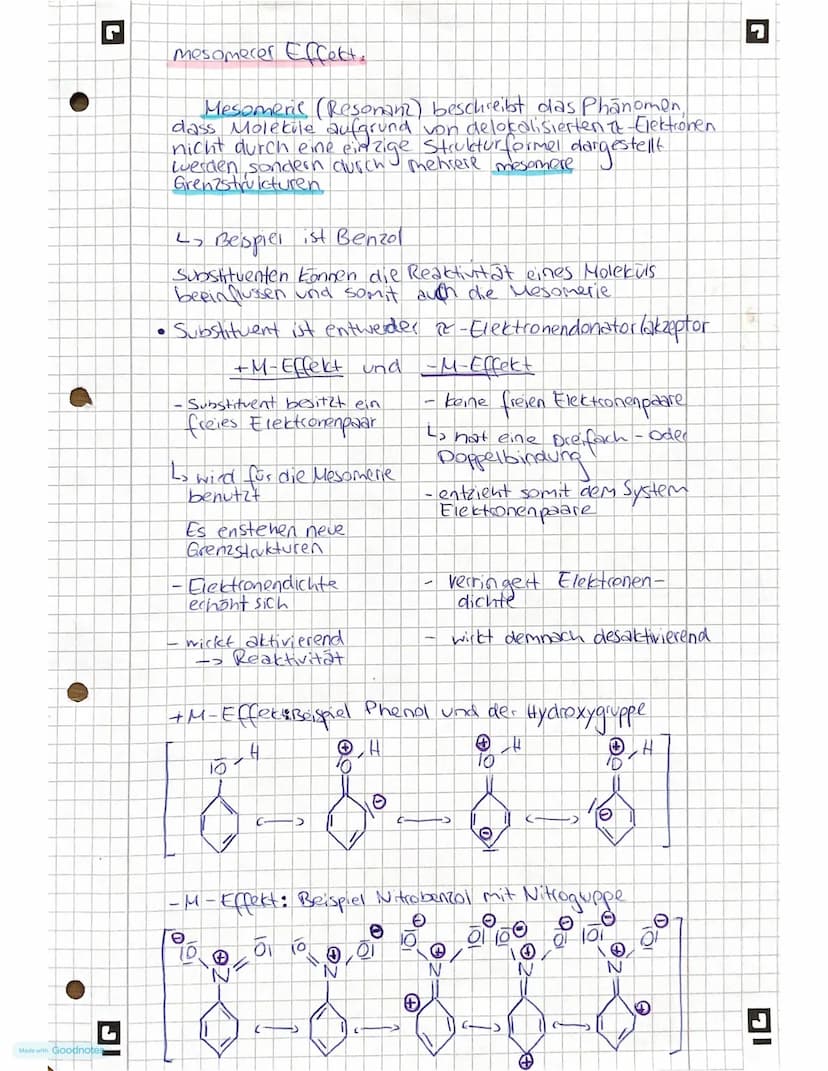 mesomerer Effekt.
Mesomerie (Resonanz) beschreibt das Phänomen,
dass Moleküle aufgrund von delokalisierten π-Elektronen
nicht durch eine einzige Strukturformel dargestellt
werden, sondern durch mehrere mesomere
Grenzstrukturen
↳ Beispiel ist Benzol
Substituenten können die Reaktivität eines Moleküls
beeinflussen und somit auch die Mesomerie
• Substituent ist entweder π-Elektronendonator/akzeptor
+M-Effekt und -M-Effekt
- Substituent besitzt ein
freies Elektronenpaar
↳ wird für die Mesomerie
benutzt
Es enstehen neue
Grenzstrukturen
- Elektronendichte
erhöht sich
- wirkt aktivierend
-> Reaktivität
- keine freien Elektronenpaare
↳ hat eine Dreifach- oder
Doppelbindung
- entzieht somit dem System
Elektronenpaare
- verringert Elektronen-
dichte
- wirkt demnach desaktivierend
+M-Effekt: Beispiel Phenol und der Hydroxygruppe
-M-Effekt: Beispiel Nitrobenzol mit Nitroguppe
Made with Goodnotes